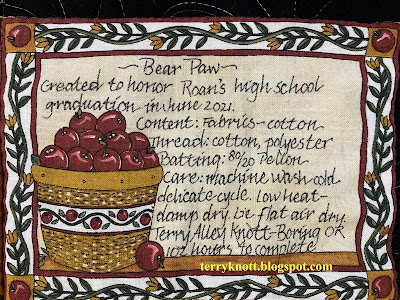 ~ Bear Paw ~
Created to honor Roan's high school
graduation in June 2021.
Content: Fabrics - cotton
Thread: cotton, polyester
Batting: 80/20 Pellon
Care: machine wash cold
delicate cycle. Low heat-
damp dry. be flat air dry.
Terry Alley Knott - Boring OR
107 hours to complete
terryknott.blogspot.com